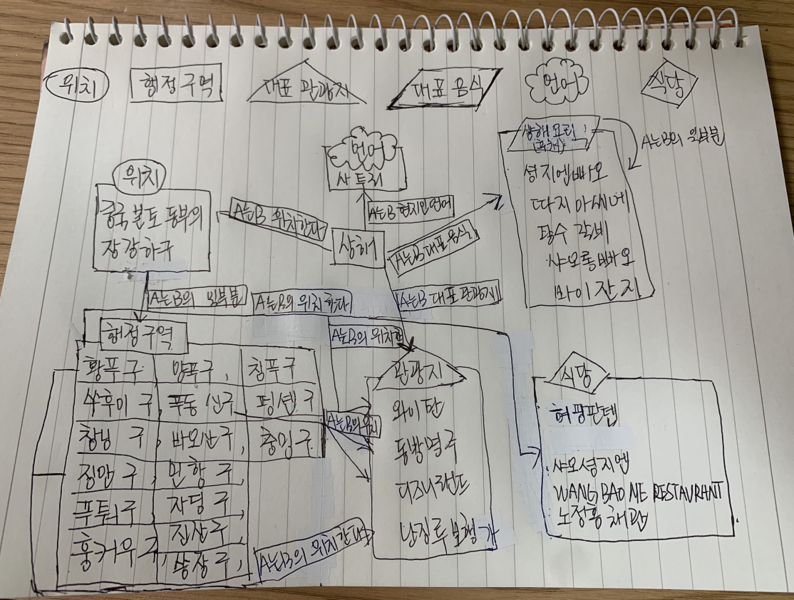 위치 행정구역 대표 관광지 대표 음식 언어 식당
언어
사투리
A는B 현지인언어
위치
중국 본토 동부의
장강하구
A는B 위치하다
상해
A는B대표음식
상해요리
A는B의 일부분
셩지엔빠오
따지아씨에
탕수 갈비
샤오롱빠오
바이잔지
A는B의 일부분
A는B의 위치하다
A는B 대표 관광지
A는B의 위치한
행정구역
황푸구 양푸구, 칭푸구
쉬후이구, 푸동신구, 펑셴구
창닝 구, 바오산구, 충밍구
징안구, 민항 구,
푸퉈구 자딩 구,
훙커우구, 진산구,
쑹장구,
A는B의 위치
관광지
와이탄
동방명주
디즈니랜드
난징루보행가
식당
허팡판뎬
샤오셩지엔
WANG BAO NE RESTAURANT
노정흥채관